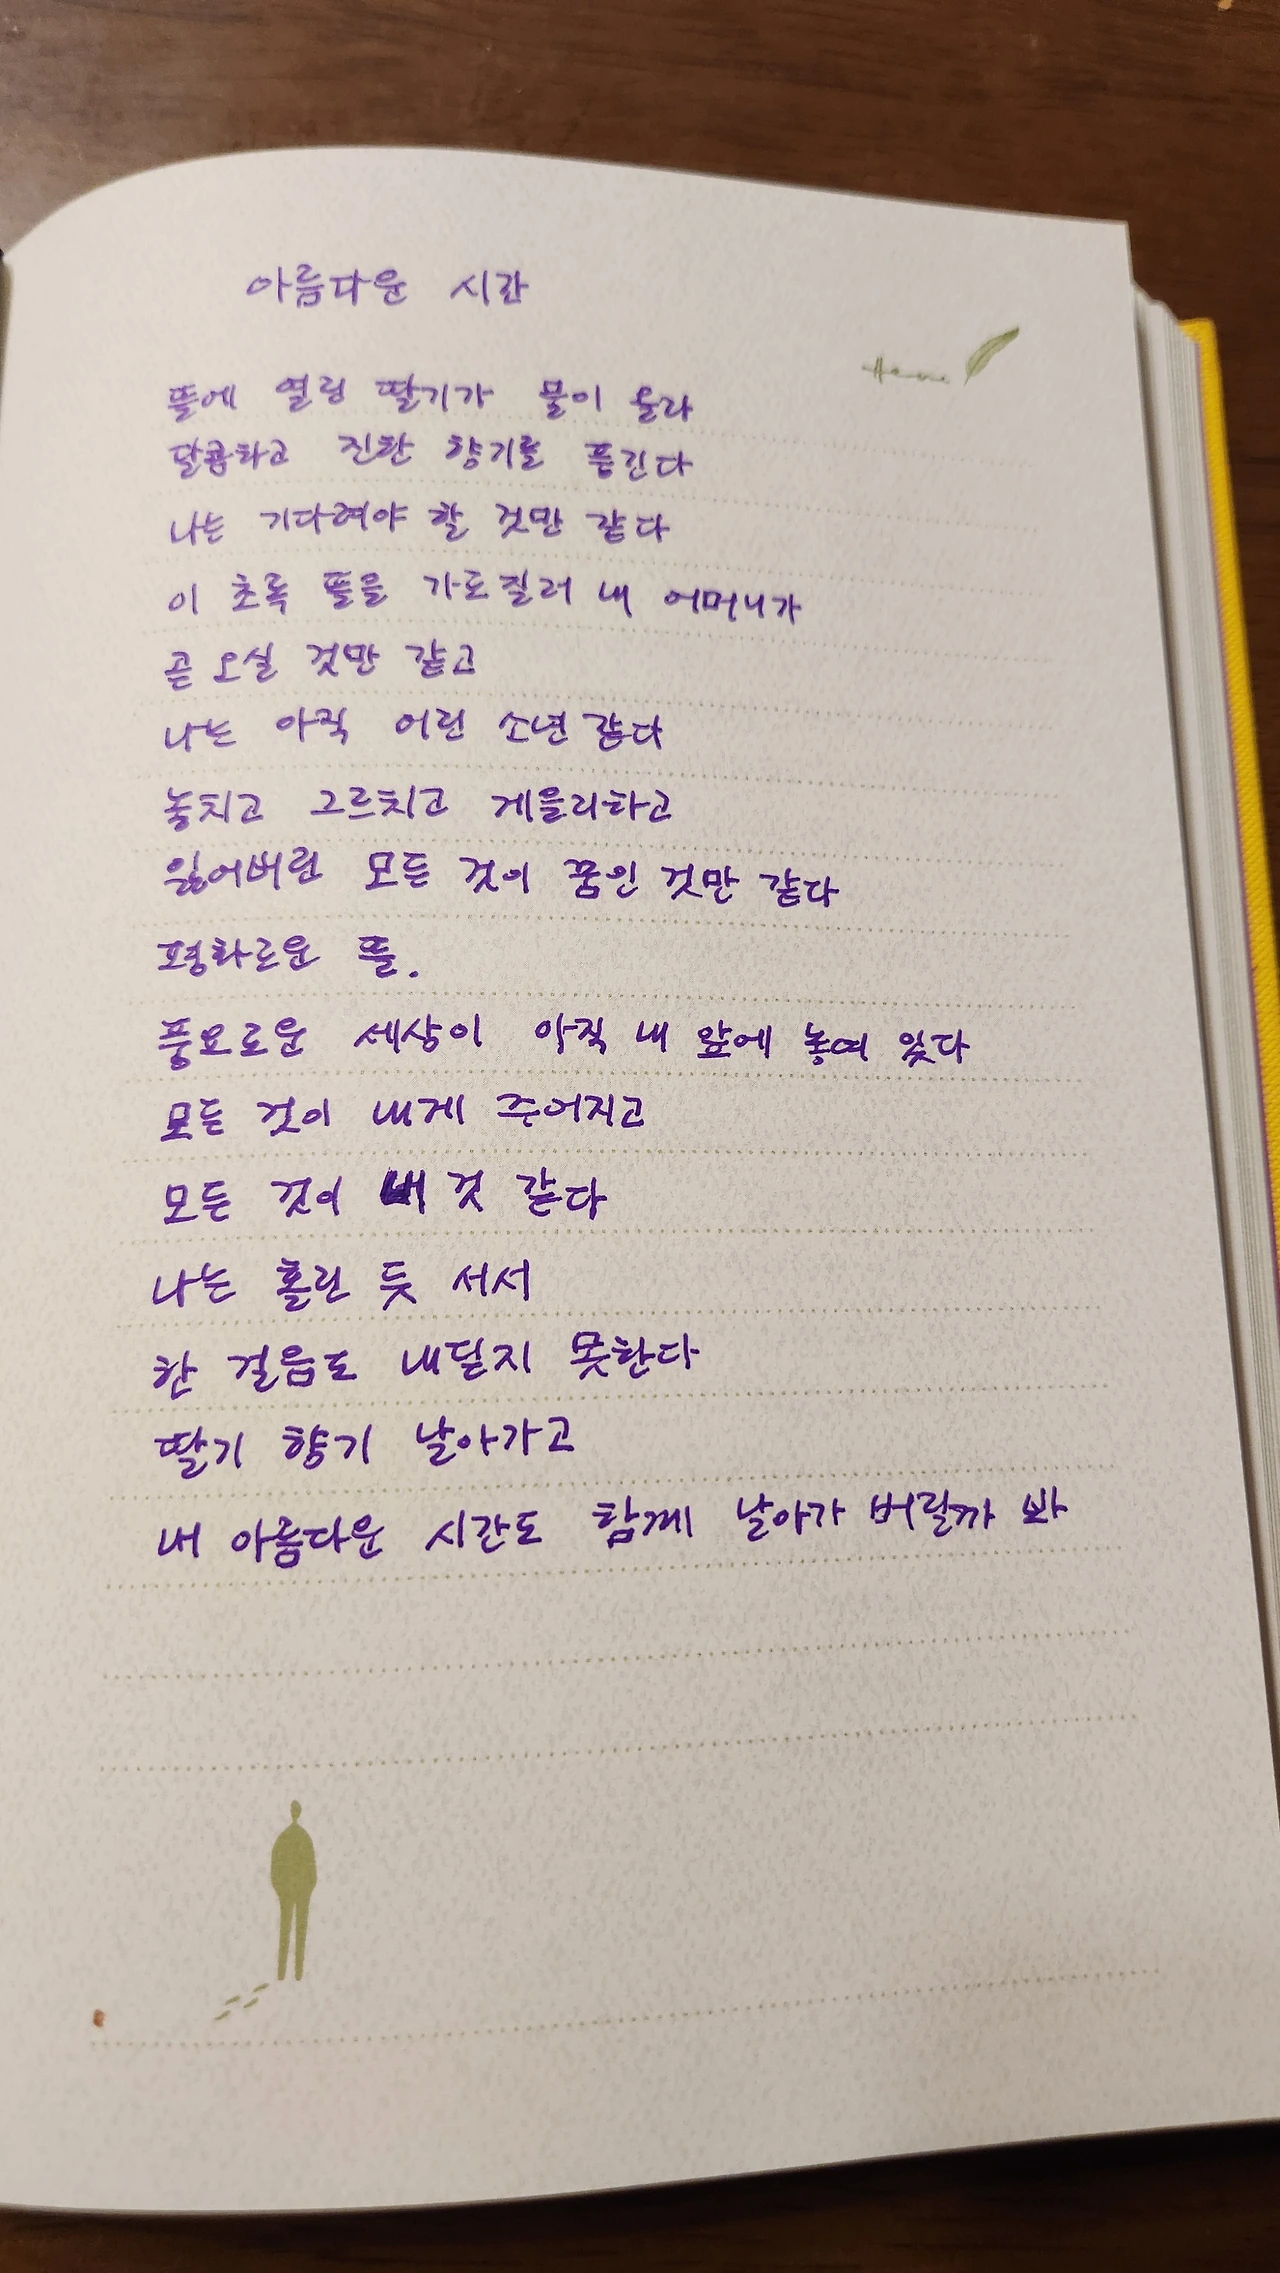 아름다운 시간
뜰에 열린 딸기가 물이 올라
달콤하고 진한 향기를 풍긴다
나는 기다려야 할 것만 같다
이 초록 뜰을 가로질러 내 어머니가
곧 오실 것만 같고
나는 아직 어린 소년 같다
놓치고 그르치고 게을리하고
잃어버린 모든 것이 꿈인 것만 같다
평화로운 뜰.
풍요로운 세상이 아직 내 앞에 놓여 있다
모든 것이 내게 주어지고
모든 것이 내 것 같다
나는 홀린 듯 서서
한 걸음도 내딛지 못한다
딸기 향기 날아가고
내 아름다운 시간도 함께 날아가 버릴까 봐